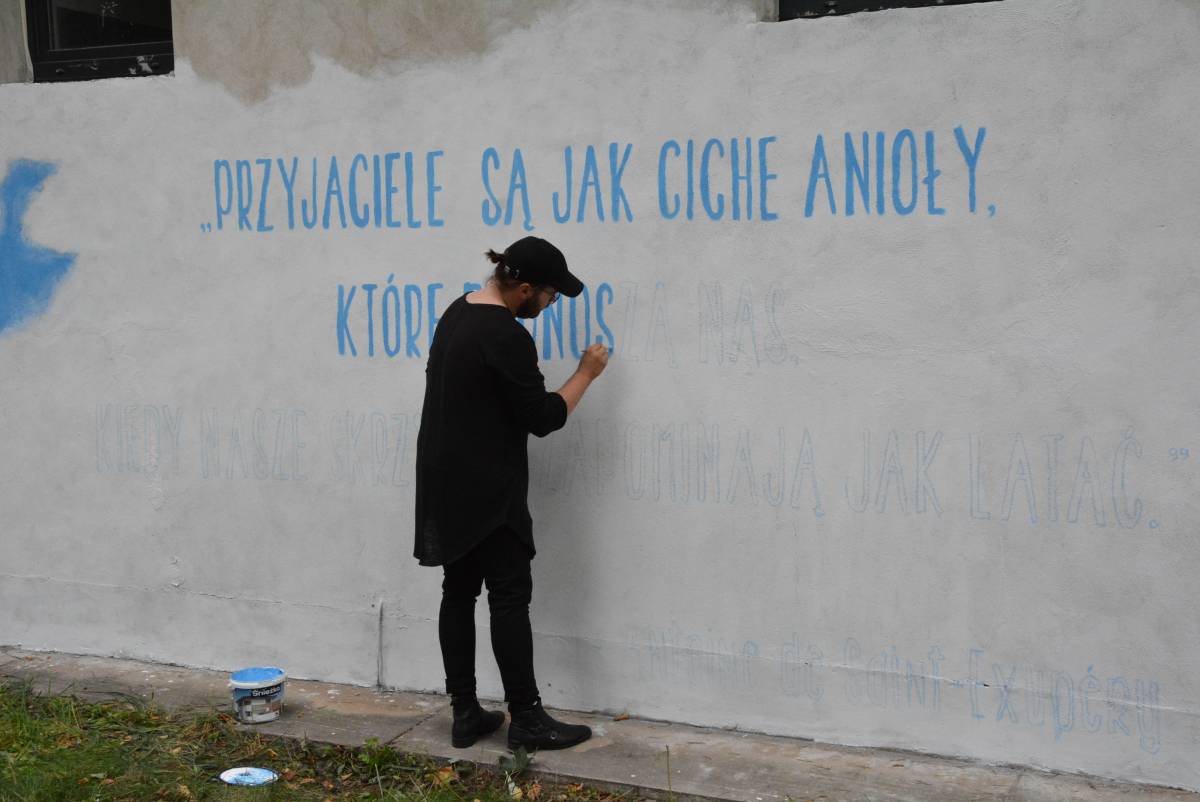 „PRZYJACIELE SĄ JAK CICHE ANIOŁY,
KTÓRE PODNOSZĄ NAS,
KIEDY NASZE SKRZYDŁA ZAPOMINAJĄ JAK LATAĆ.”
Antoine de Saint-Exupéry
Śnieżka